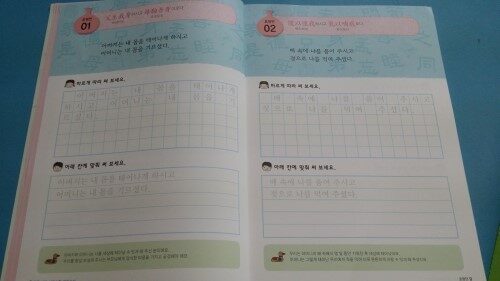 효행편
01
父生我身하시고 母鞠吾身이로다
아버지는 내 몸을 태어나게 하시고
어머니는 내 몸을 기르셨다.
바르게 따라 써 보세요.
아버지는 내 몸을 태어나게
하시고 어머니는 내 몸을 기
르셨다.
아래 칸에 맞춰 써 보세요.
아버지는 내 몸을 태어나게 하시고
어머니는 내 몸을 기르셨다.
효행편
02
腹以懷我하시고 乳以哺我로다
배 속에 나를 품어 주시고
젖으로 나를 먹여 주셨다.
바르게 따라 써 보세요.
배 속에 나를 품어 주시고
젖으로 나를 먹여 주셨다.
아래 칸에 맞춰 써 보세요.
배 속에 나를 품어 주시고
젖으로 나를 먹여 주셨다.